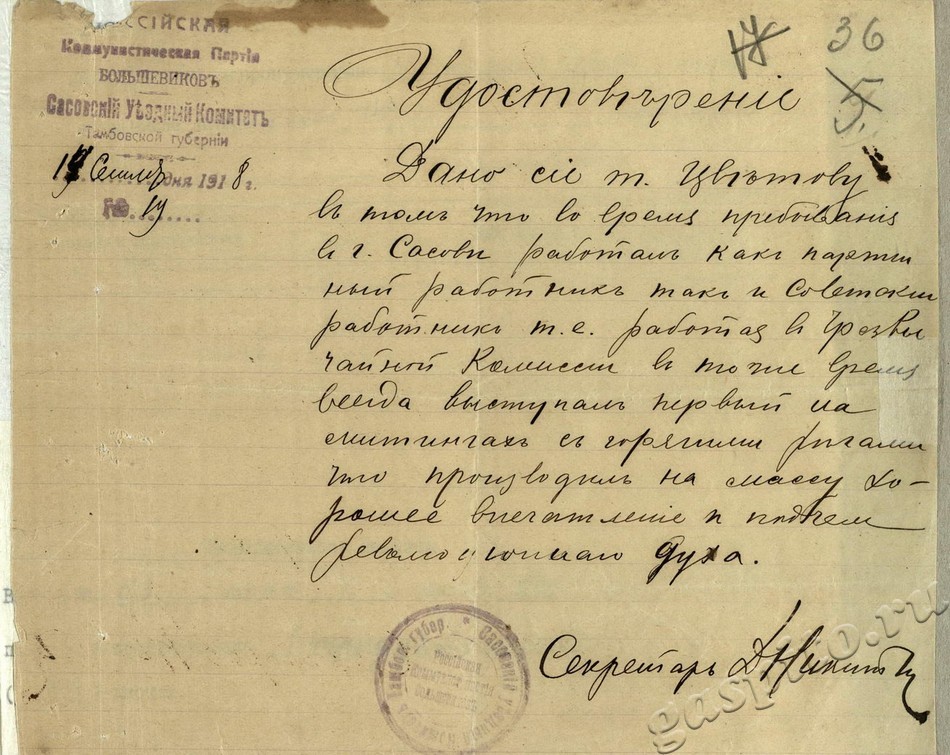 РОССІЙСКАЯ
Коммунистическая Партія
БОЛЬШЕВИКОВЪ
Сасовскій Уѣздный Комитетъ
Тамбовской губерніи
дня 1918 г.
№ 19
36
5
Удостовѣреніе
Дано сіе т. Цвѣтову
въ томъ что во время пребыванія
въ г. Сасови работалъ какъ партій
ный работникъ такъ и Советскій
работникъ т.е. работая въ Чрезвы
чайной Комиссіи въ тоже время
всегда выступалъ первый на
митингахъ съ горячими речами
что производилъ на массу хо-
рошее впечатленіе и подъем
революціоннаго духа.
Секретарь Д Никитъ
Сасовскій Уѣздный
Тамбов. Губер.
Российская
gaspiro.ru